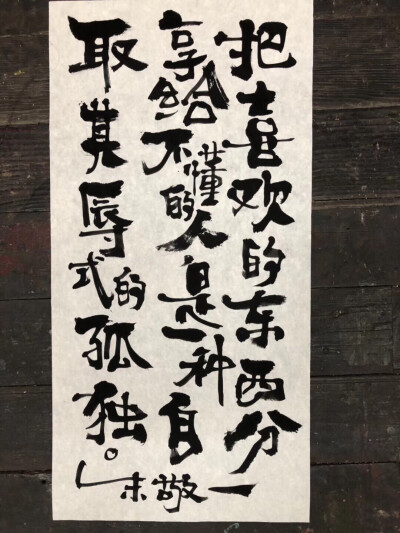 把喜欢的东西分
享给不懂的人是一种自
取其辱式的孤独。
朱敬一